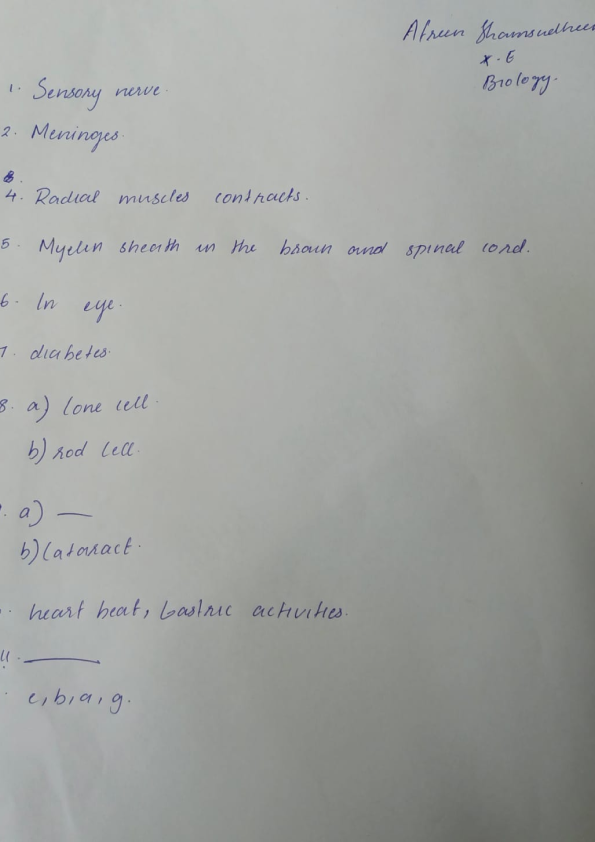 Afreen Shamsudheen
X.E
Biology.
1. Sensory nerve.
2. Meninges.
4. Radial muscles contracts.
5. Myelin sheath in the brain and spinal cord.
6. In eye.
7. diabetes.
8. a) Cone cell.
b) rod cell.
. a) —
b) Cataract.
. heart beat, Gastric activities.
11. —
. c, b, a, g.